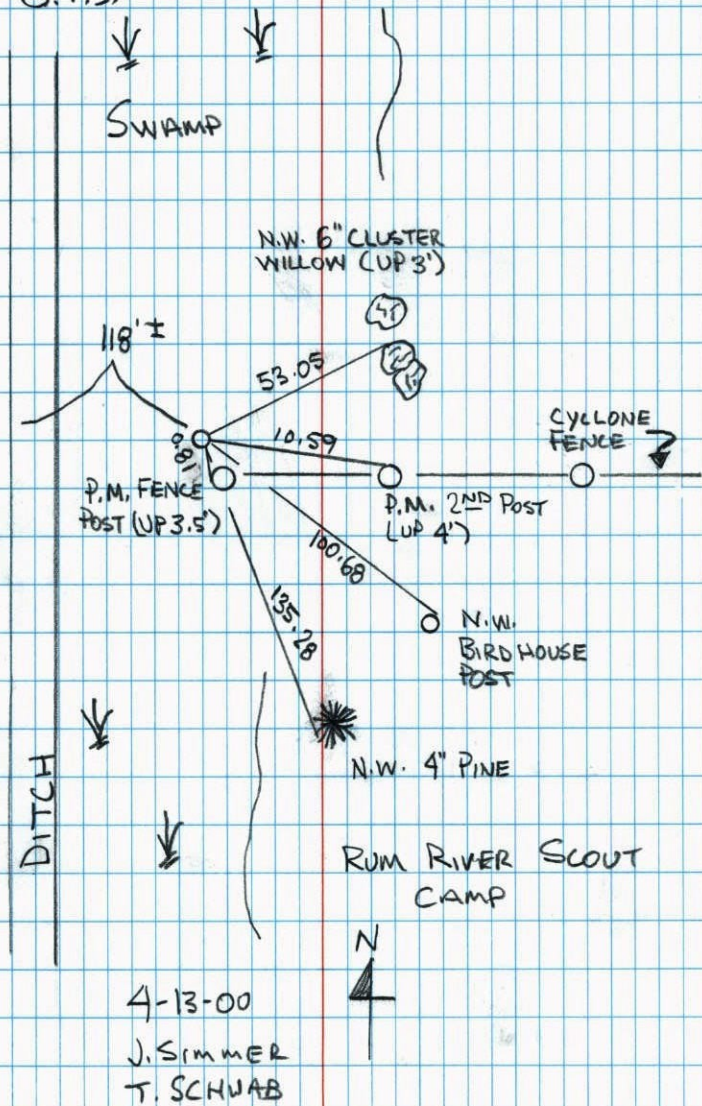 SWAMP
N.W. 6" CLUSTER
WILLOW (UP 3')
118' ±
53.05
10.59
0.81
CYCLONE
FENCE
P.M. FENCE
POST (UP 3.5')
P.M. 2ND POST
(UP 4')
100.68
135.28
N.W.
BIRDHOUSE
POST
N.W. 4" PINE
DITCH
RUM RIVER SCOUT
CAMP
N
4-13-00
J. SIMMER
T. SCHWAB